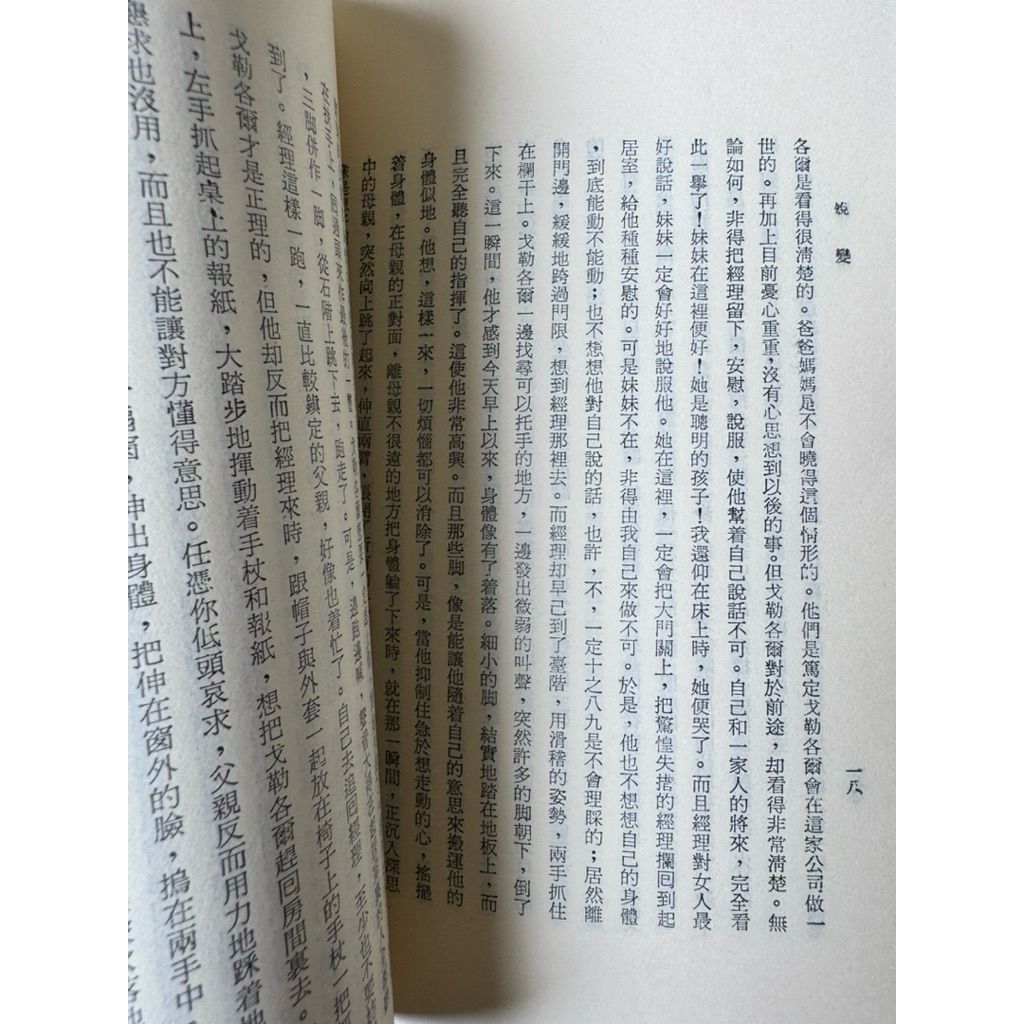 蛻變
一八
各爾是看得很清楚的。爸爸媽媽是不會曉得這個情形的。他們是篤定戈勒各爾會在這家公司做一
世的。再加上目前憂心重重,沒有心思想到以後的事。但戈勒各爾對於前途,却看得非常清楚。無
論如何,非得把經理留下,安慰,說服,使他幫着自己說話不可。自己和一家人的將來,完全看
此一舉了!妹妹在這裡便好!她是聰明的孩子!我還仰在床上時,她便哭了。而且經理對女人最
好說話,妹妹一定會好好地說服他。她在這裡,一定會把大門關上,把驚惶失措的經理攔回到起
居室,給他種種安慰的。可是妹妹不在,非得由我自己來做不可。於是,他也不想想自己的身體
,到底能動不能動;也不想想他對自己說的話,也許,不,一定十之八九是不會理睬的;居然離
開門邊,緩緩地跨過門限,想到經理那裡去。而經理却早已到了臺階,用滑稽的姿勢,兩手抓住
在欄干上。戈勒各爾一邊找尋可以托手的地方,一邊發出微弱的叫聲,突然許多的脚朝下,倒了
下來。這一瞬間,他才感到今天早上以來,身體像有了着落。細小的脚,結實地踏在地板上,而
且完全聽自己的指揮了。這使他非常高興。而且那些脚,像是能讓他隨着自己的意思來搬運他的
身體似地。他想,這樣一來,一切煩惱都可以消除了。可是,當他抑制住急於想走動的心,搖擺
着身體,在母親的正對面,離母親不很遠的地方把身體躺了下來時,就在那一瞬間,正沉入深思
中的母親,突然向上跳了起來,伸直兩臂,張開
,三脚併作一脚,從石階上跳下去,跑走了。可是,
到了。經理這樣一跑,一直比較鎮定的父親,好像也着忙了。自己去追回經理,至少也不
戈勒各爾才是正理的,但他却反而把經理來時,跟帽子與外套一起放在椅子上的手杖一把
上,左手抓起桌上的報紙,大踏步地揮動着手杖和報紙,想把戈勒各爾趕回房間裏去。
懇求也沒用,而且也不能讓對方懂得意思。任憑你低頭哀求,父親反而用力地踩着地
伸出身體,把伸在窗外的臉,搗在兩手中